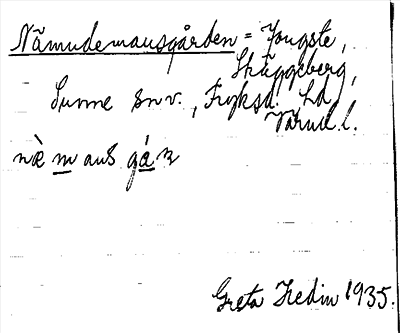 Nämudemausgården = Yngste,
Skäggeberg,
Sunne snv., Fryksd. hd
Värml. l.
næ m aus gá n
Greta Hedin 1935.